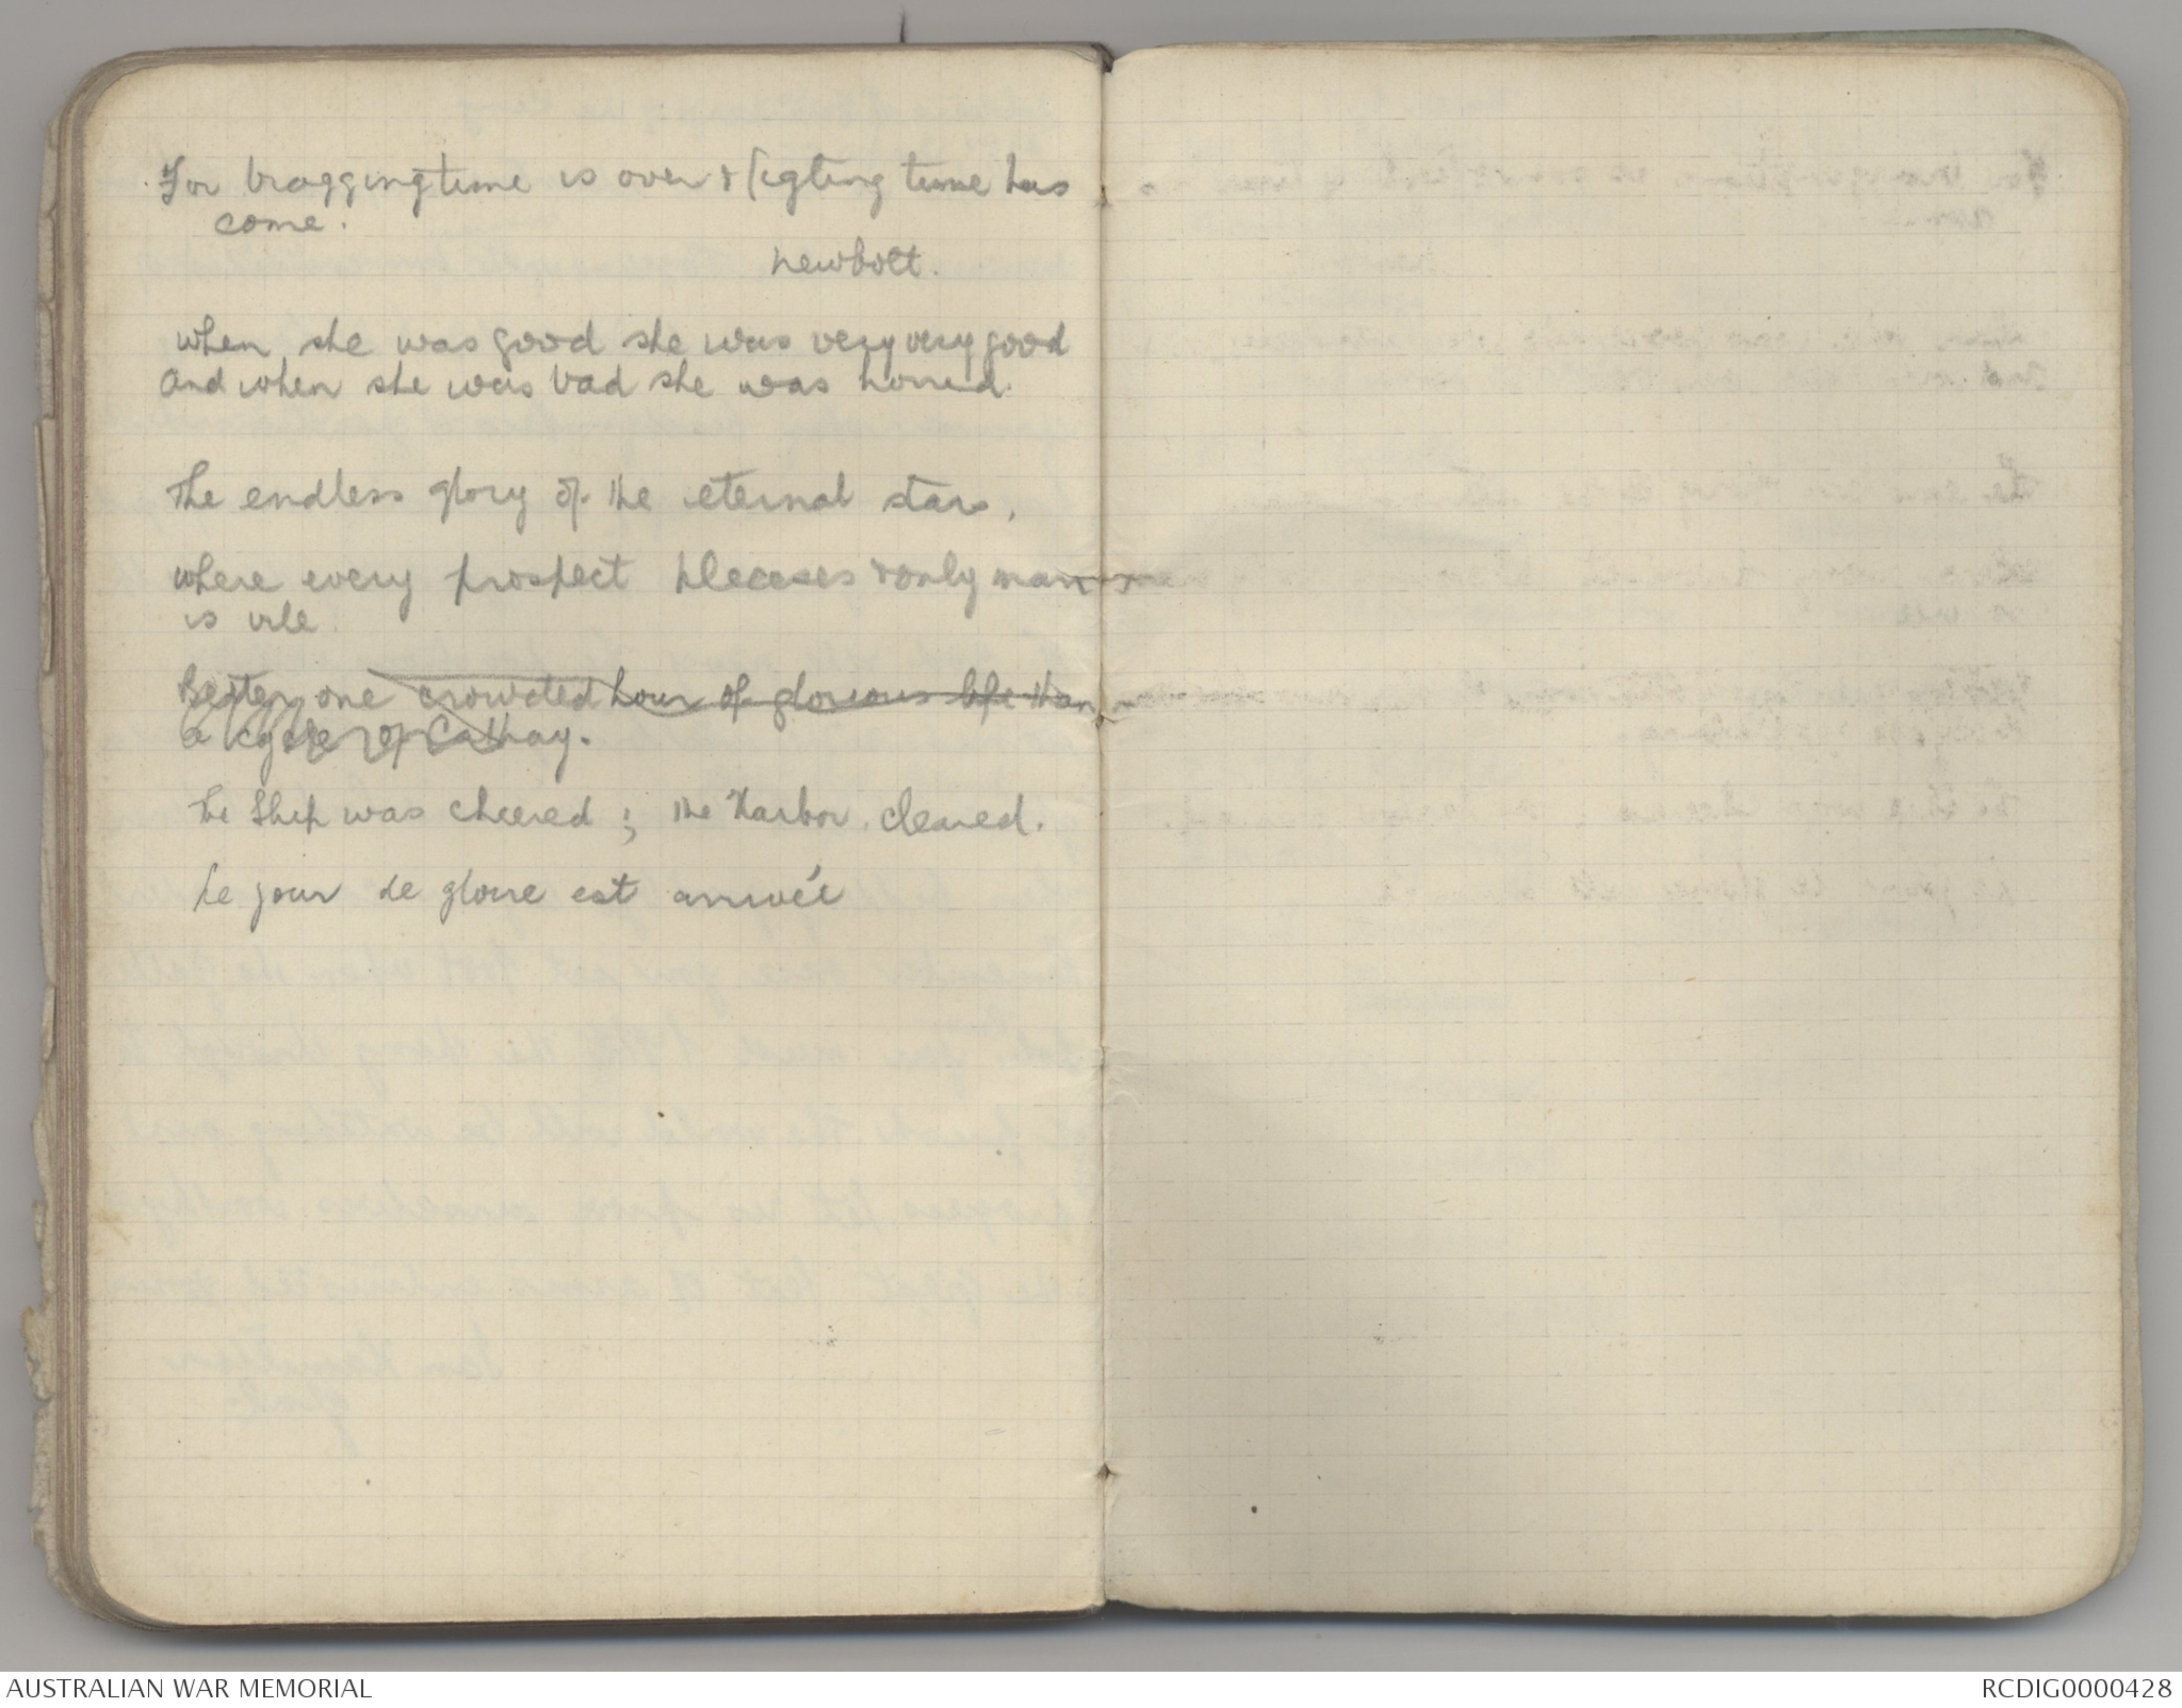 For bragging time is over & figting time has
come.
Newbolt.
when she was good she was very very good
And when she was bad she was horrid.
The endless glory of the eternal stars,
where every prospect pleases & only man
is vile
Better one crowded hour of glorious life than
a cycle of Cathay.
The Ship was cheered; the Harbor cleared.
Le jour de gloire est arrivée
AUSTRALIAN WAR MEMORIAL
RCDIG0000428